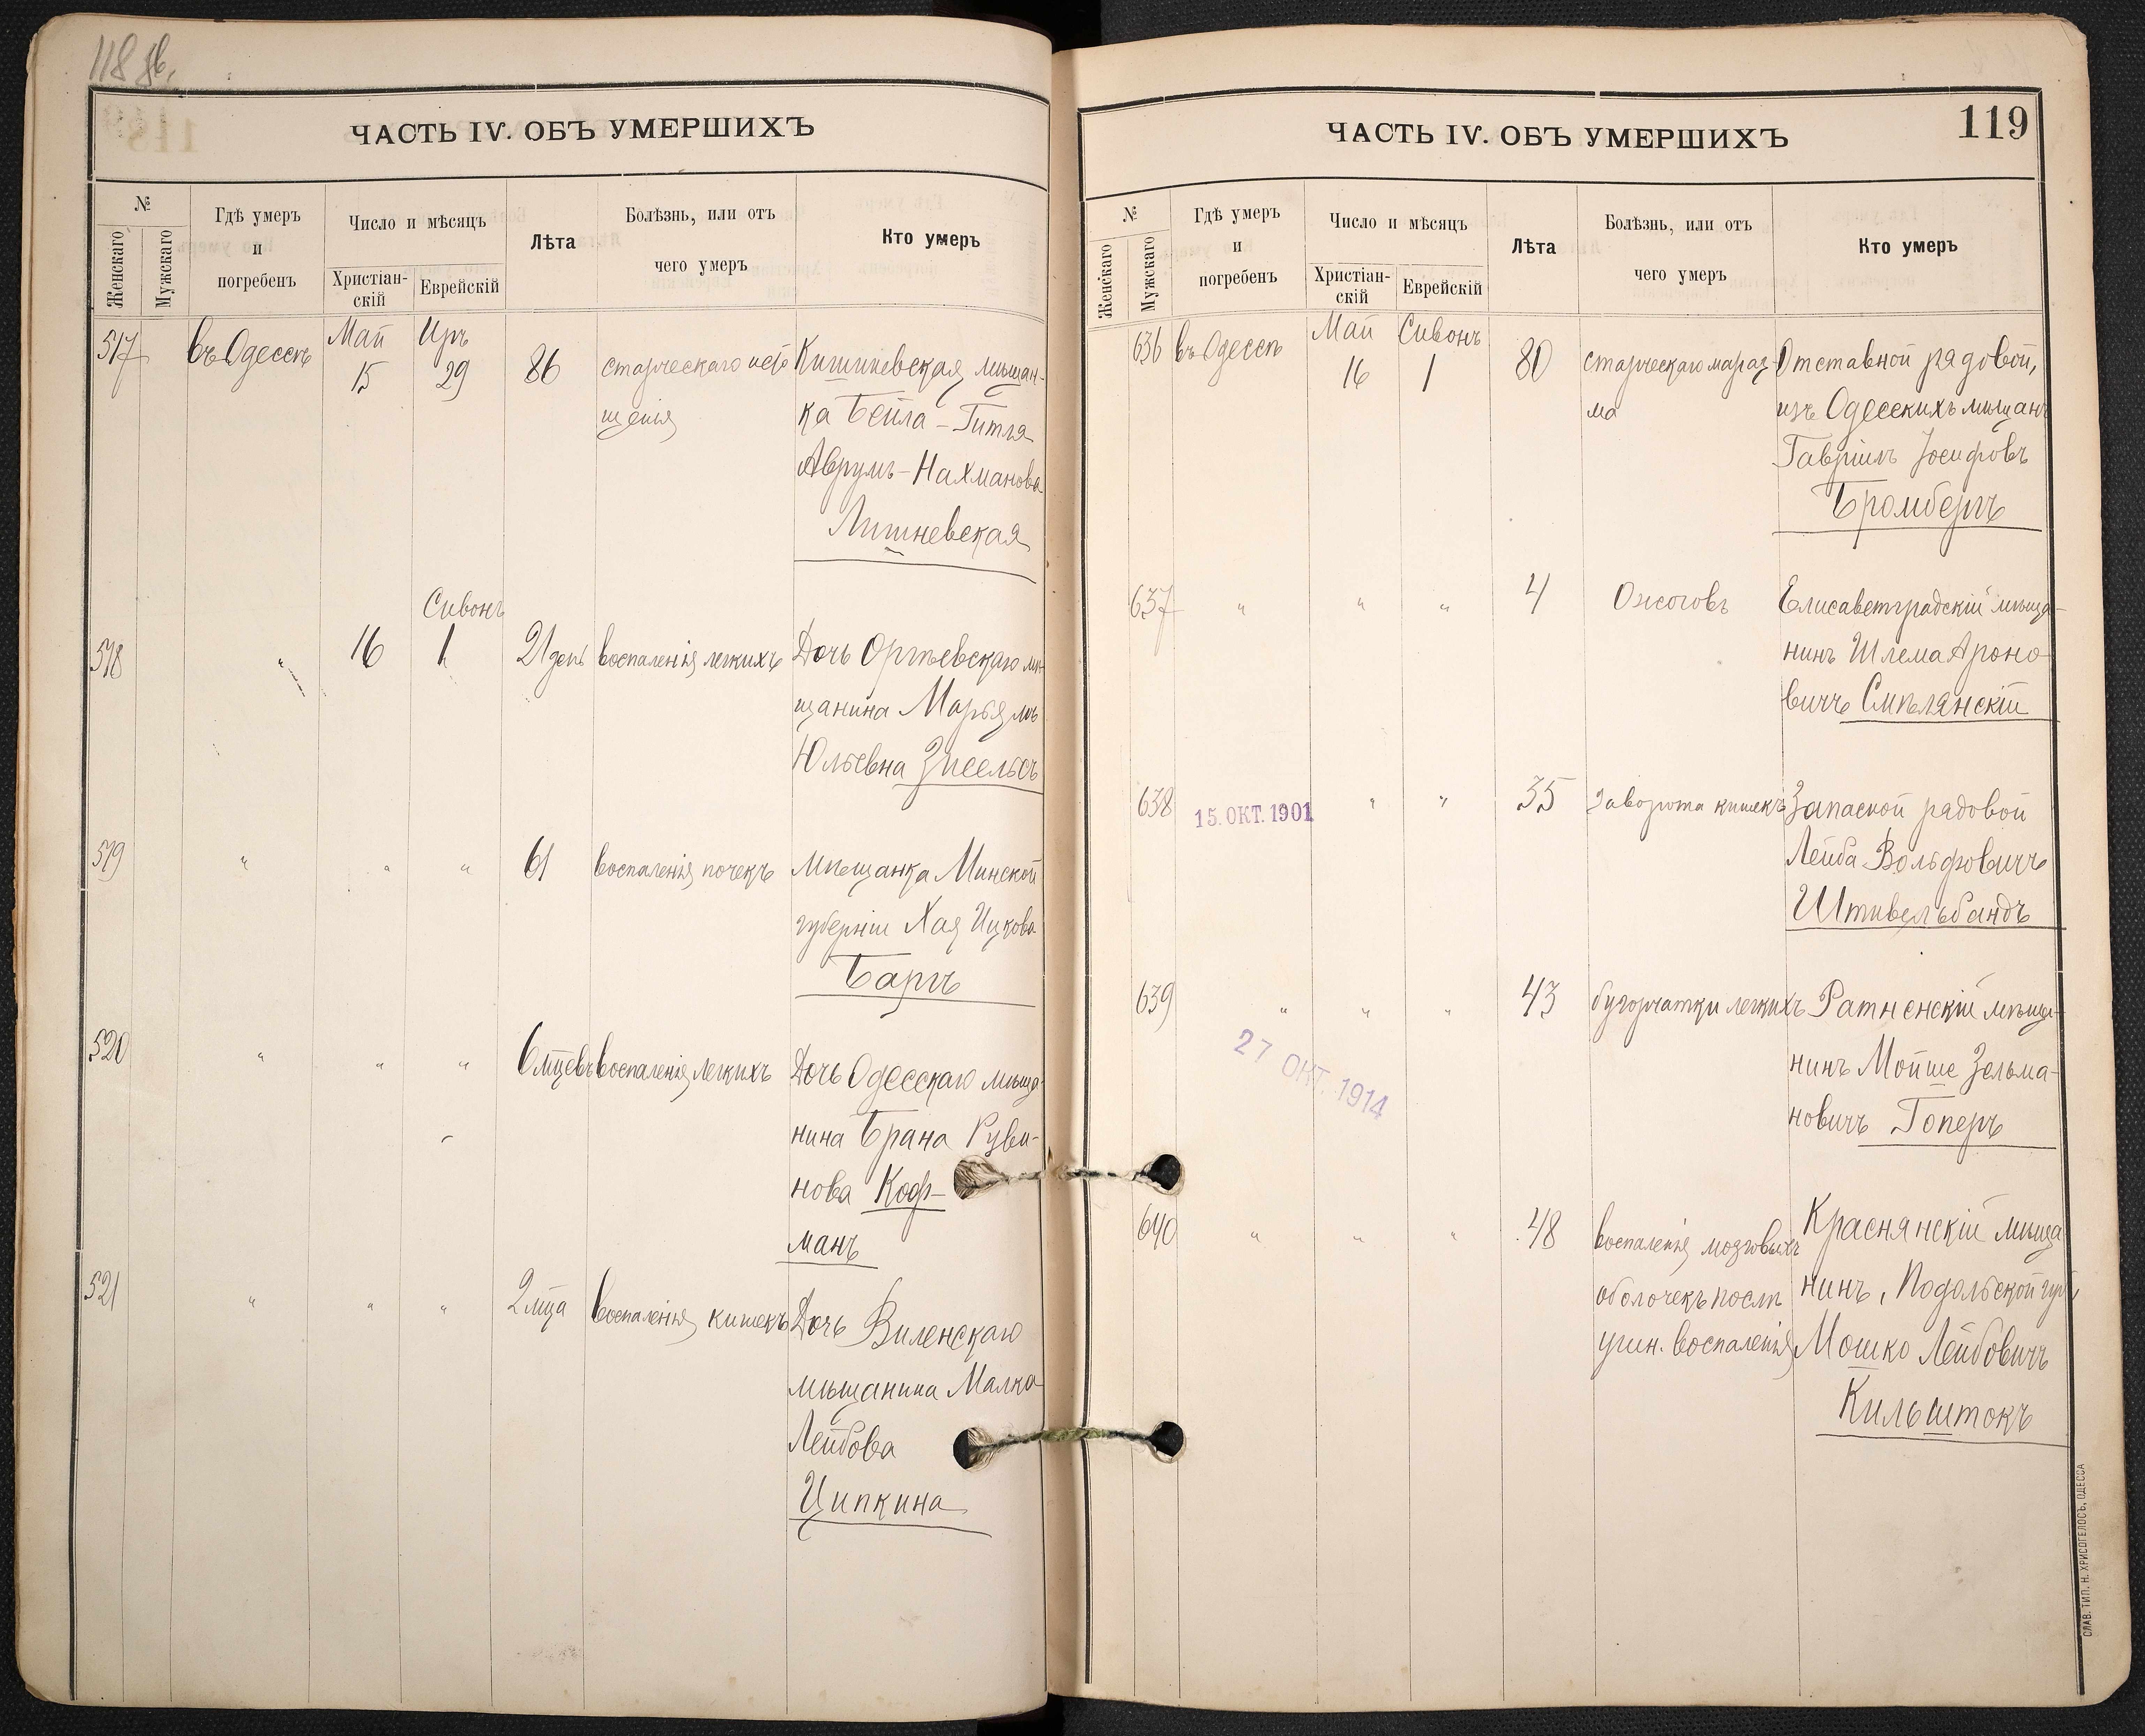 118 об.
ЧАСТЬ IV. ОБЪ УМЕРШИХЪ
№
Женскаго
Мужскаго
Гдѣ умеръ
и
погребенъ
Число и мѣсяцъ
Христіан-
скій
Еврейскій
Лѣта
Болѣзнь, или отъ
чего умеръ
Кто умеръ
517 въ Одессѣ Май 15 Иръ 29 86 старческаго исто
щенія
Кишиневская мѣщан-
ка Бейла-Гитля
Аврумъ-Нахманова
Лишневская
Сивонъ
518 " 16 1 21 день воспаленія легкихъ Дочь Оргѣевскаго мѣ-
щанина Марьямъ
Юльевна Зисельсъ
519 " " " 61 воспаленія почекъ Мѣщанка Минской
губерніи Хая Ицкова
Баргъ
520 " " " 6 мцевъ воспаленія легкихъ Дочь Одесскаго мѣща-
нина Брана Руви-
нова Коф-
манъ
521 " " " 2 мца воспаленія кишекъ Дочь Виленскаго
мѣщанина Малка
Лейбова
Ципкина
119
ЧАСТЬ IV. ОБЪ УМЕРШИХЪ
№
Женскаго
Мужскаго
Гдѣ умеръ
и
погребенъ
Число и мѣсяцъ
Христіан-
скій
Еврейскій
Лѣта
Болѣзнь, или отъ
чего умеръ
Кто умеръ
636 въ Одессѣ Май 16 Сивонъ 1 80 старческаго мараз-
ма
Отставной рядовой,
изъ Одесскихъ мѣщанъ
Гавріилъ Іосифовъ
Бромбергъ
637 " " " 4 Ожоговъ Елисаветградскій мѣща-
нинъ Шлема Ароно-
вичъ Смѣлянскій
638 15. ОКТ. 1901 " " 35 заворота кишекъ Запасной рядовой
Лейба Вольфовичъ
Штивельбандъ
639 " " " 43 бугорчатки легкихъ Ратненскій мѣща-
27 ОКТ. 1914
нинъ Мойше Зельма-
новичъ Гоперъ
640 " " " 48 воспаленія мозговыхъ
оболочекъ послѣ
ушн. воспаленія
Краснянскій мѣща
нинъ, Подольской губ.,
Мошко Лейбовичъ
Кильштокъ
СЛАВ. ТИП. Н. ХРИСОГЕЛОСЪ, ОДЕССА